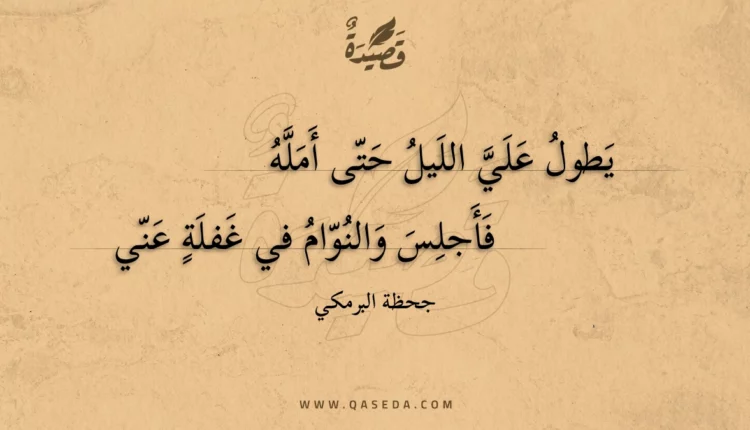 قَصِيْدَةٌ
يَطولُ عَلَيَّ اللَيلُ حَتّى أَمَلَّهُ
فَأَجلِسَ وَالنُوّامُ في غَفلَةٍ عَنّي
جحظة البرمكي
WWW.QASEDA.COM